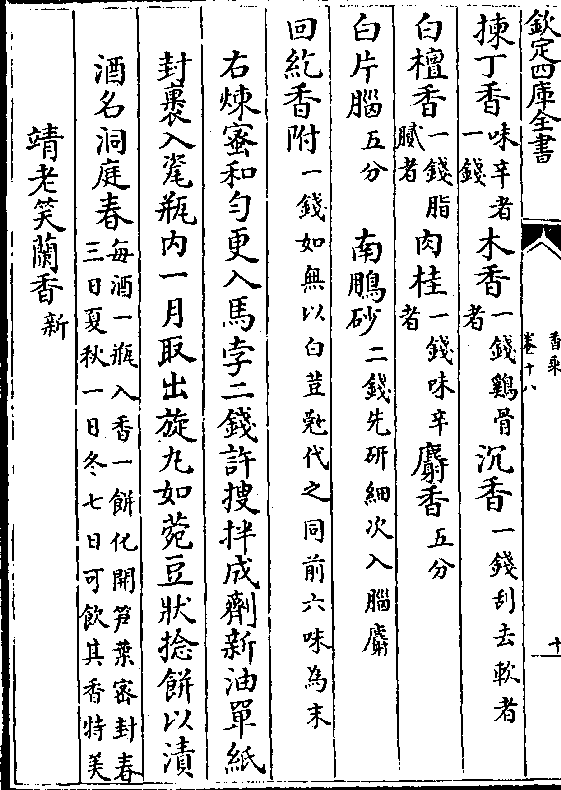 欽定四庫全書
香乘
卷十八
十
揀丁香味辛者一錢木香一錢鷄骨者沉香一錢刮去軟者
白檀香一錢脂膩者肉桂一錢味辛者麝香五分
白片腦五分南鵬砂二錢先研細次入腦麝
回紇香附一錢如無以白荳蔲代之同前六味為末
右煉蜜和勻更入馬孛二錢許搜拌成劑新油單紙
封裹入甆瓶内一月取出旋丸如菀豆狀捻餅以漬
酒名洞庭春每酒一瓶入香一餅化開笋葉密封春三日夏秋一日冬七日可飲其香特美
靖老笑蘭香新